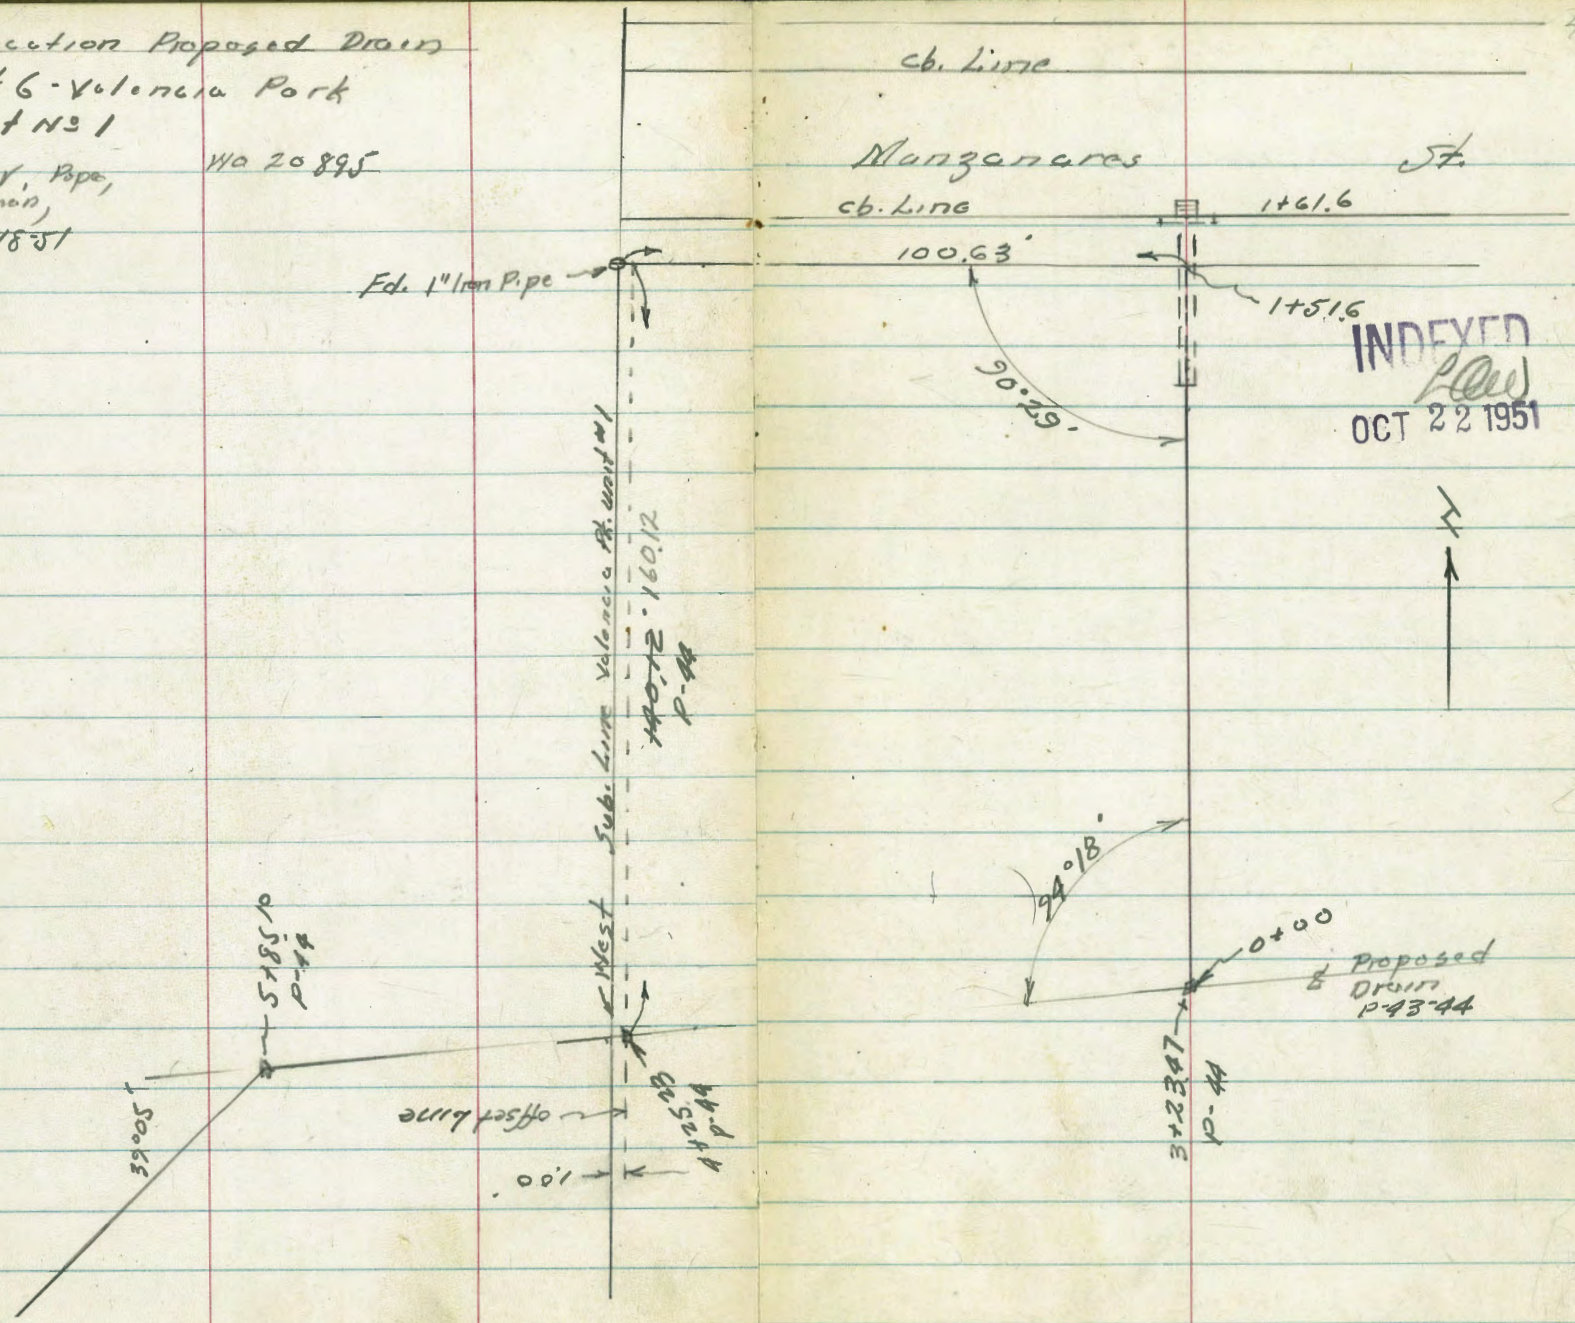 cation Proposed Drain
6 - Valencia Park
t No 1
WO 20895
Pope,
18-51
cb. Line
Manzanares St.
cb. Line
1+61.6
100.63'
Fd. 1" Iron Pipe
1+51.6
INDEXED
OCT 22 1951
90°29'
N
West Sub. Line Valencia Pk. unit #1
140.12 · 160.12
P-44
94°18'
0+00
Proposed
Drain
P-43-44
3+23.47
P-44
5+85.10
P-44
39°05'
offset Line
4+25.23
P-44
1.00